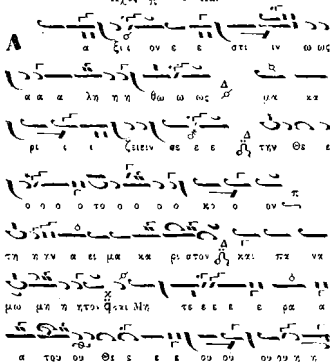 Α ξι ι ον ε ε στι ιν ω ως
α α α λη η η θω ω ως Δ μα κα
ρι ι ι ζειειν σε ε ε Δ την Θε ε
ο ο ο ο το ο ο ο ο κο ο ον π
τη η ην α ει μα κα ρι στον Δ και πα να
μω μη η η τον και Μη τε ε ε ε ρα α
α του ου Θε ε ε ε ου ου ου ου η η